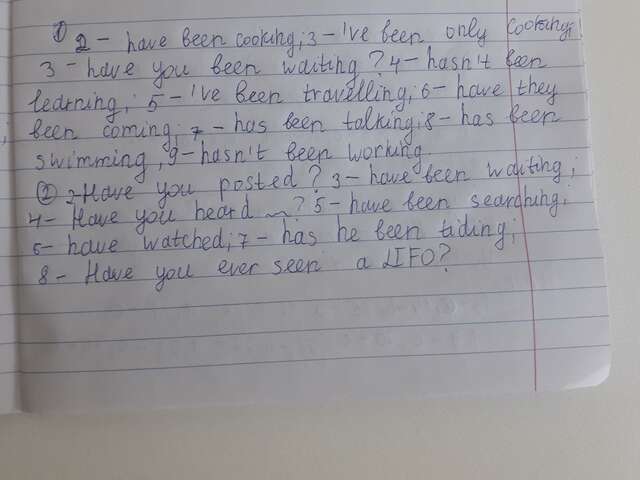 ① 2 - have been cooking; 3 - 've been only cooking;
3 - have you been waiting? 4 - hasn't been
learning; 5 - 've been travelling; 6 - have they
been coming; 7 - has been talking; 8 - has been
swimming, 9 - hasn't been working
② 2 - Have you posted? 3 - have been waiting;
4 - Have you heard ~? 5 - have been searching;
6 - have watched; 7 - has he been tiding;
8 - Have you ever seen a LIFO?